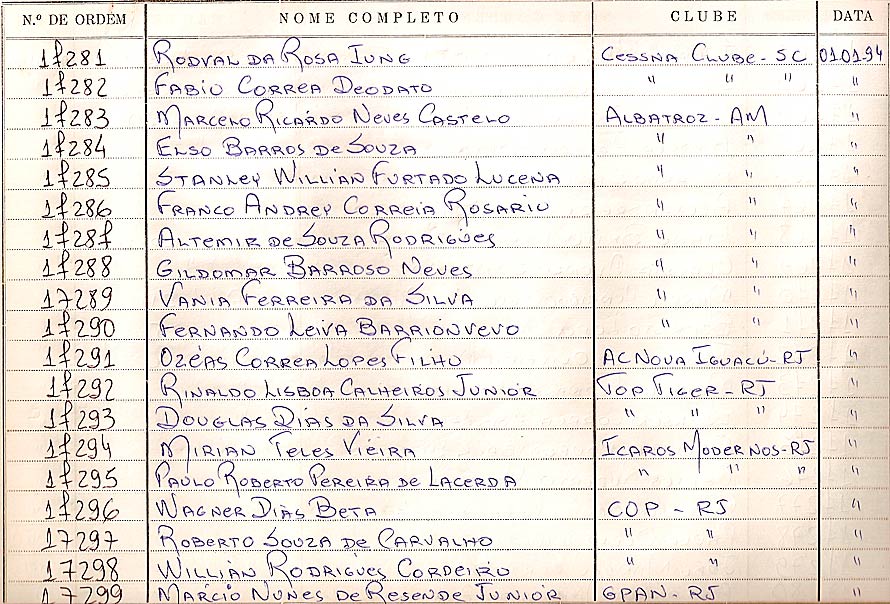 N.º DE ORDEM NOME COMPLETO CLUBE DATA
17281 RODVAL DA ROSA IUNG CESSNA CLUBE - SC 01.01.94
17282 FABIO CORREA DEODATO " " " "
17283 MARCELO RICARDO NEVES CASTELO ALBATROZ - AM "
17284 ELSO BARROS DE SOUZA " " "
17285 STANLEY WILLIAN FURTADO LUCENA " " "
17286 FRANCO ANDREY CORREIA ROSARIO " " "
17287 ALTEMIR DE SOUZA RODRIGUES " " "
17288 GILDOMAR BARROSO NEVES " " "
17289 VANIA FERREIRA DA SILVA " " "
17290 FERNANDO LEIVA BARRIONVEVO " " "
17291 OZÉAS CORREA LOPES FILHO AC NOVA IGUAÇÚ - RJ "
17292 RINALDO LISBOA CALHEIROS JUNIOR TOP TIGER - RJ "
17293 DOUGLAS DIAS DA SILVA " " " "
17294 MIRIAN TELES VIEIRA ICAROS MODERNOS - RJ "
17295 PAULO ROBERTO PEREIRA DE LACERDA " " " "
17296 WAGNER DIAS BETA COP - RJ "
17297 ROBERTO SOUZA DE CARVALHO " " "
17298 WILLIAN RODRIGUES CORDEIRO " " "
17299 MARCIO NUNES DE RESENDE JUNIOR GPAN - RJ "